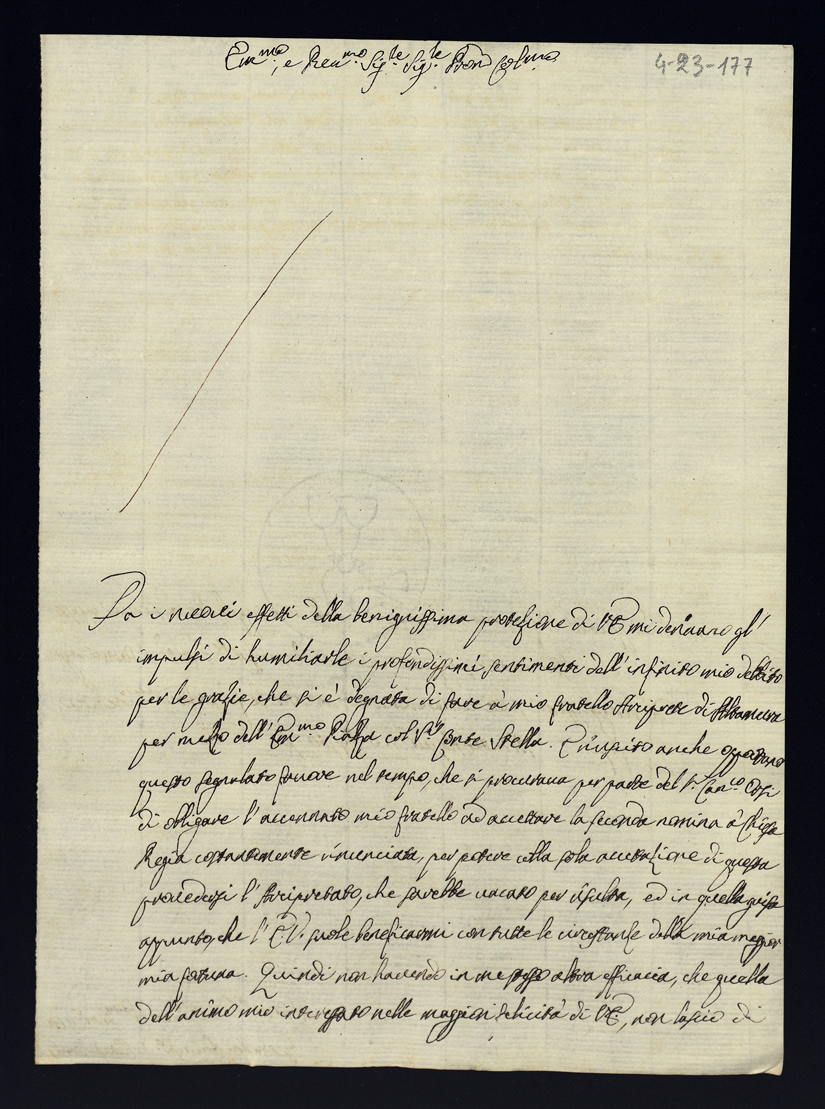 Em.mo, e Rev.mo Sig.re Sig.re Pron Col.mo
4-23-177
Da i nuovi effetti della benignissima protezione di V.E. mi derivano gl'
impulsi di humiliarle i profondissimi sentimenti dell'infinito mio debito
per le grazie, che si è degnata di fare à mio fratello Arciprete di Altamura
per mezzo dell'Em.mo col S.r Conte Stella. È riuscito anche opportuno
questo segnalato favore nel tempo, che si procurava per parte del S.r Can.co
di obligare l'accennato mio fratello ad accettare la seconda nomina à Chiesa
Regia costantemente rinunciata, per potere colla sola accettazione di questa
provedersi l'Arcipretato, che sarebbe vacato per risulta, ed in quella guisa
appunto, che l'E.V. suole beneficarmi con tutte le circostanze della mia maggior
mia fortuna. Quindi non havendo in me stesso altra efficacia, che quella
dell'animo mio interessato nelle maggiori felicità di V.E., non lascio di